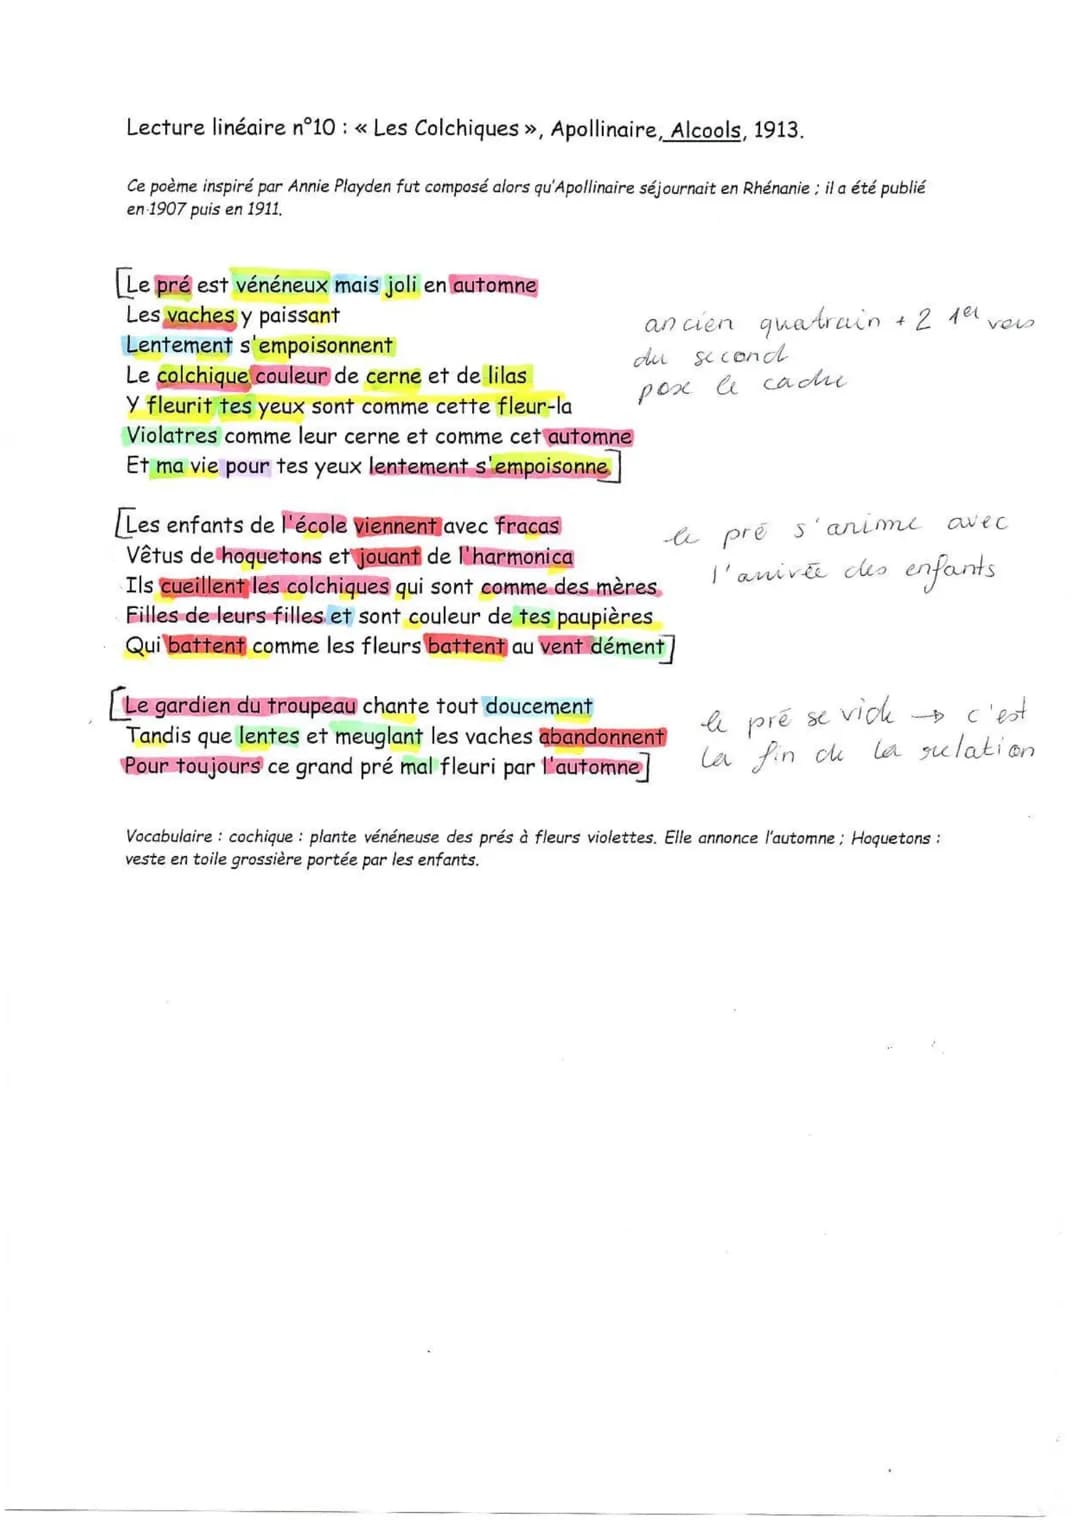 Lecture linéaire n°10 : « Les Colchiques », Apollinaire, Alcools, 1913.
Ce poème inspiré par Annie Playden fut composé alors qu'Apollinaire séjournait en Rhénanie ; il a été publié
en 1907 puis en 1911.
Le pré est vénéneux mais joli en automne
Les vaches y paissant
Lentement s'empoisonnent
Le colchique couleur de cerne et de lilas
Y fleurit tes yeux sont comme cette fleur-la
Violatres comme leur cerne et comme cet automne
Et ma vie pour tes yeux lentement s'empoisonne
ancien quatrain + 2 1er vers
du second
pose le cadre
Les enfants de l'école viennent avec fracas
Vêtus de hoquetons et jouant de l'harmonica
Ils cueillent les colchiques qui sont comme des mères
Filles de leurs filles et sont couleur de tes paupières
Qui battent comme les fleurs battent au vent dément
le pré s'anime avec
l'arrivée des enfants
Le gardien du troupeau chante tout doucement
Tandis que lentes et meuglant les vaches abandonnent
Pour toujours ce grand pré mal fleuri par l'automne
le pré se vide → c'est
la fin de la relation
Vocabulaire : cochique : plante vénéneuse des prés à fleurs violettes. Elle annonce l'automne ; Hoquetons :
veste en toile grossière portée par les enfants.